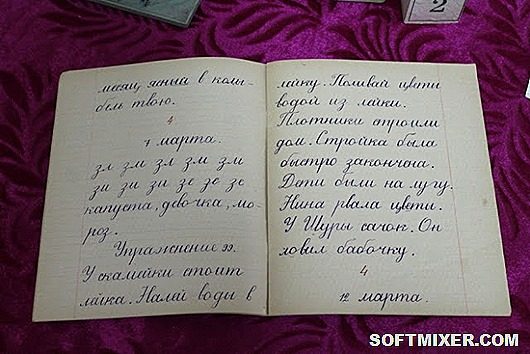 2
месяц ясный в колы-
бель твою.
4
7 марта.
зл зм зл зм зм
зи зи зи зе зе зе
капуста, девочка, мо-
роз.
Упражнение 99.
У скамейки стоит
лейка. Налей воды в
лейку. Поливай цветы
водой из лейки.
Плотники строили
дом. Стройка была
быстро закончена.
Дети были на лугу.
Нина рвала цветы.
У Шуры сачок. Он
ловил бабочку.
4
12 марта.
SOFTMIXER.COM